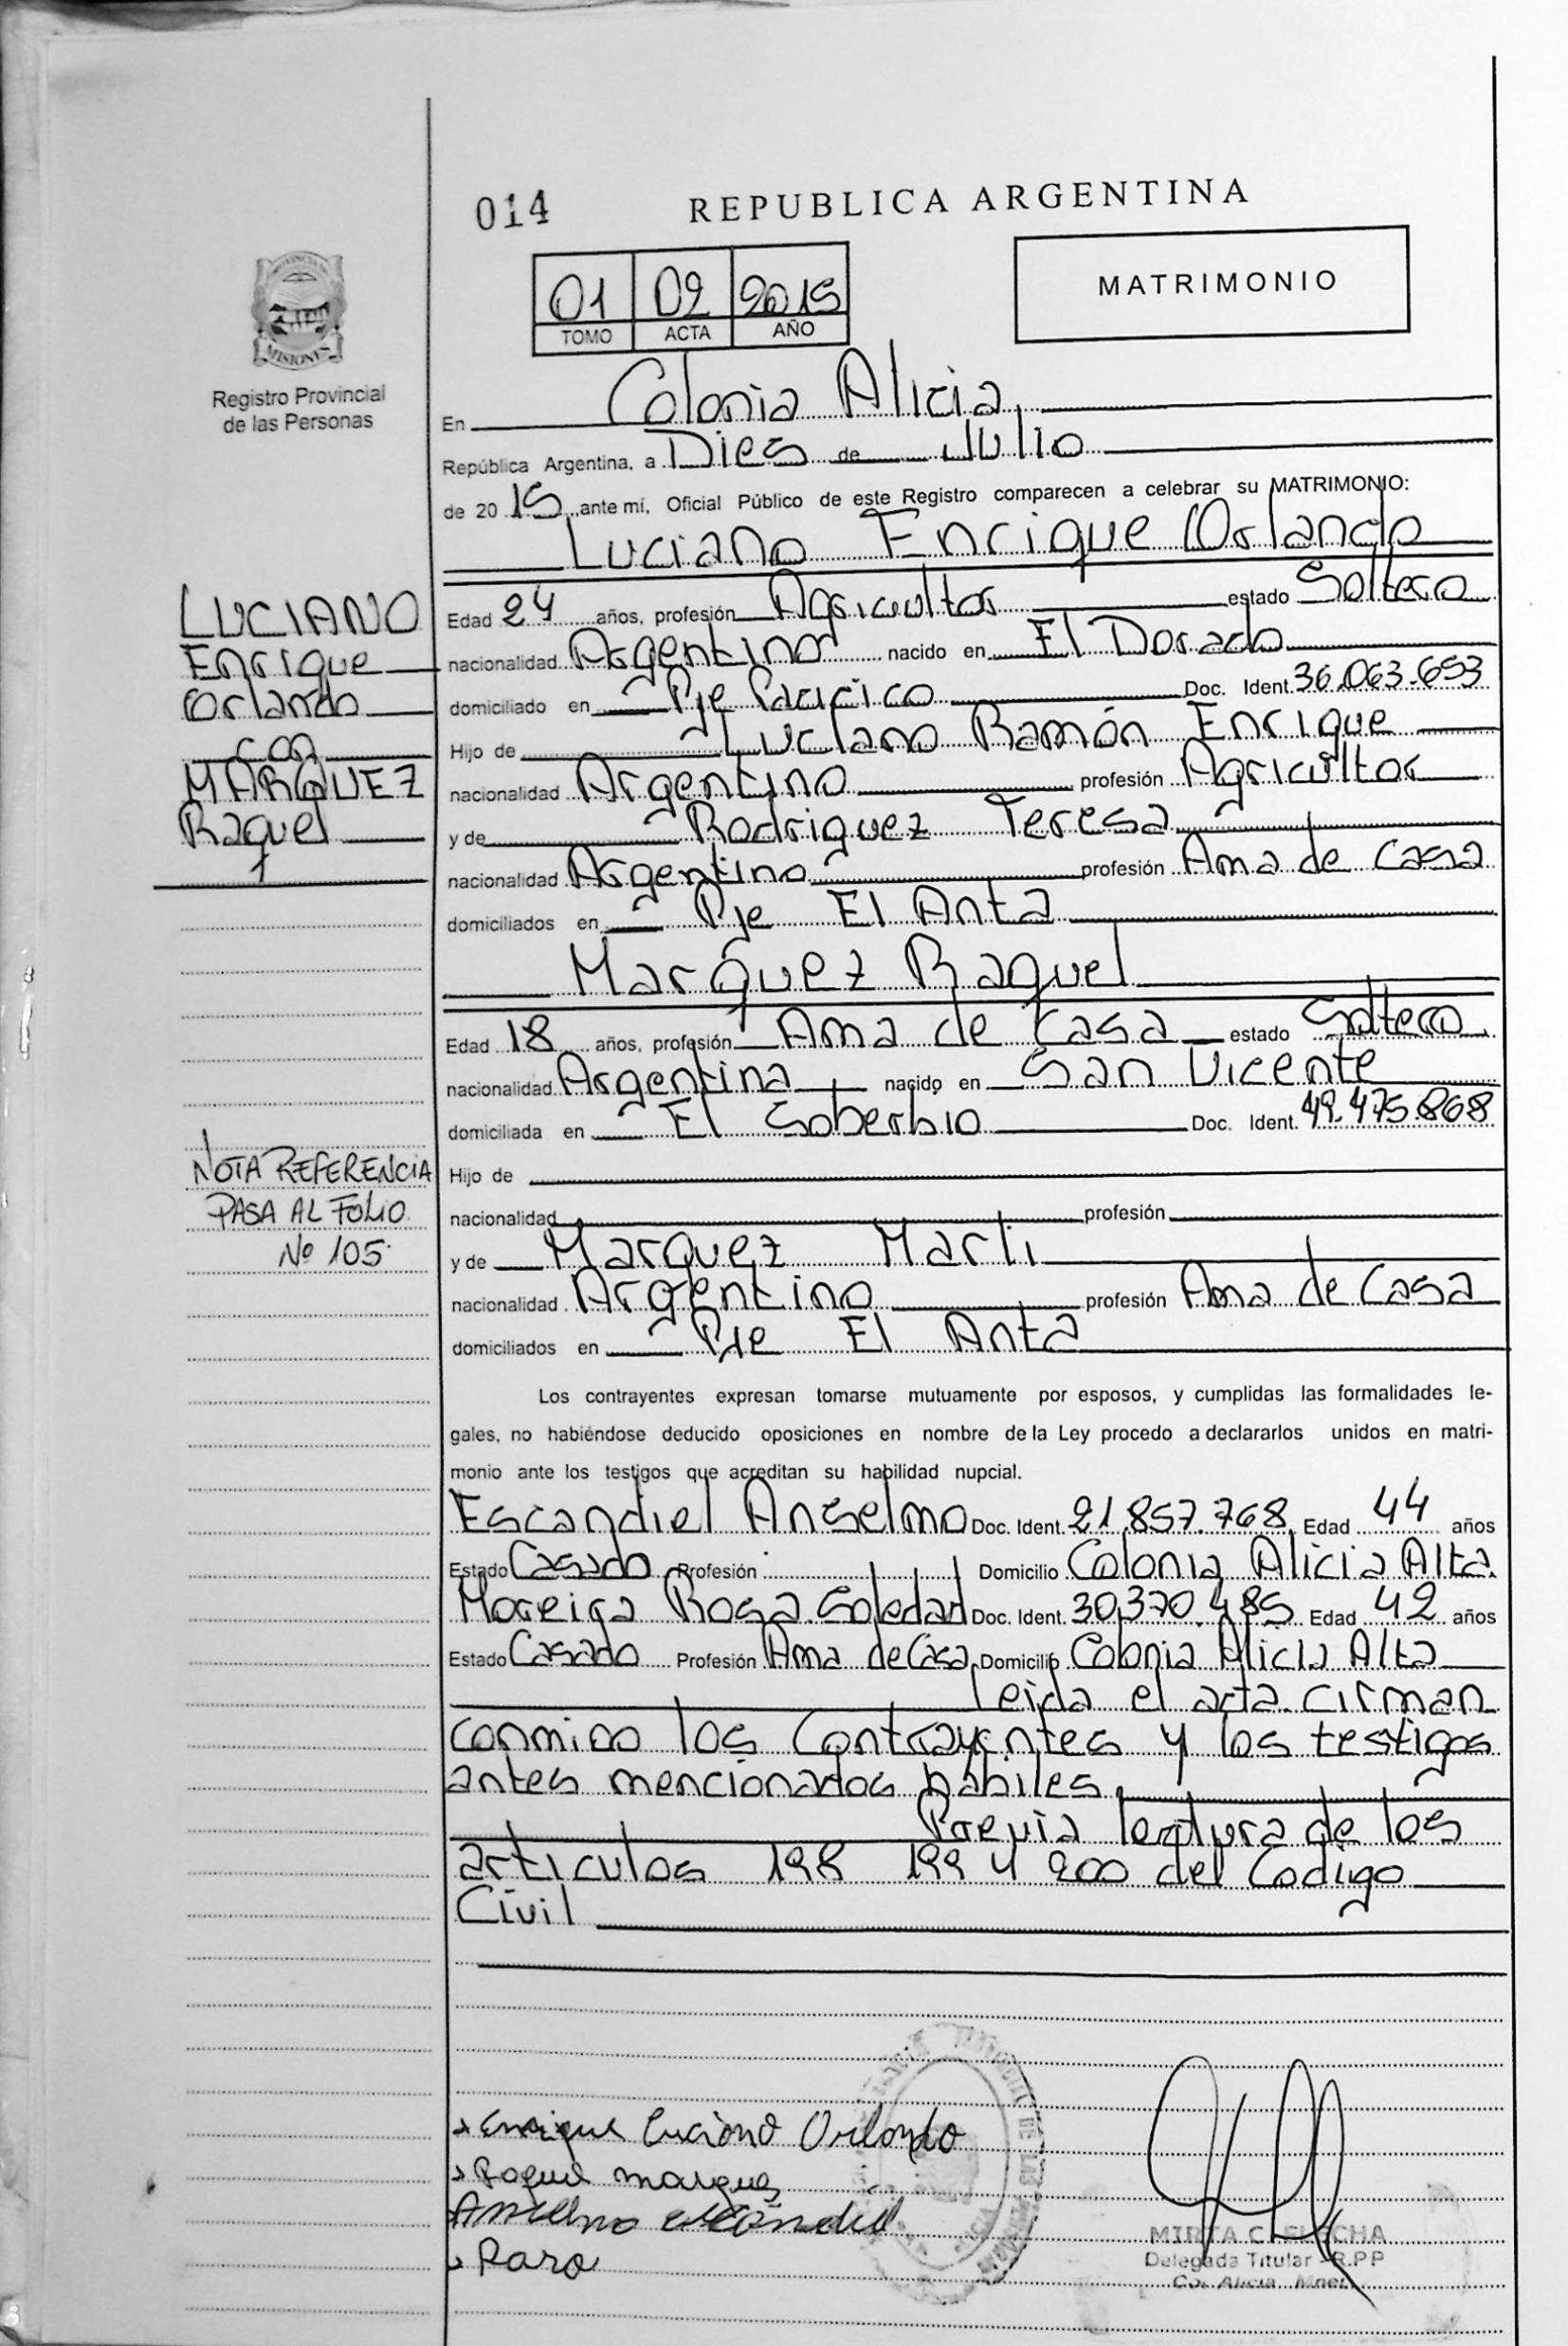 014
REPUBLICA ARGENTINA
01 02 2015
TOMO ACTA AÑO
MATRIMONIO
MISIONES
Registro Provincial
de las Personas
En Colonia Alicia,
República Argentina, a Dies de Julio
de 2015 ante mí, Oficial Público de este Registro comparecen a celebrar su MATRIMONIO:
Luciano Enrique Orlando
LUCIANO
Enrique
Orlando
con
MARQUEZ
Raquel
Edad 24 años, profesión Agricultor estado Soltero
nacionalidad Argentino nacido en El Dorado
domiciliado en Pje Pacifico Doc. Ident. 36.063.653
Hijo de Luciano Ramón Enrique
nacionalidad Argentino profesión Agricultor
y de Rodriguez Teresa
nacionalidad Argentino profesión Ama de Casa
domiciliados en Pje El Anta
Marquez Raquel
Edad 18 años, profesión Ama de Casa estado Soltero
nacionalidad Argentina nacido en San Vicente
domiciliada en El Soberbio Doc. Ident. 49.475.868
NOTA REFERENCIA
PASA AL FOLIO
Nº 105
Hijo de
nacionalidad profesión
y de Marquez Marli
nacionalidad Argentino profesión Ama de Casa
domiciliados en Pje El Anta
Los contrayentes expresan tomarse mutuamente por esposos, y cumplidas las formalidades le-
gales, no habiéndose deducido oposiciones en nombre de la Ley procedo a declararlos unidos en matri-
monio ante los testigos que acreditan su habilidad nupcial.
Escandiel Anselmo Doc. Ident. 21.857.768 Edad 44 años
Estado Casado Profesión Domicilio Colonia Alicia Alta
Moreira Rosa Soledad Doc. Ident. 30.370.485 Edad 42 años
Estado Casado Profesión Ama de Casa Domicilio Colonia Alicia Alta
leida el acta cirman
conmigo los Contrayentes y los testigos
antes mencionados hábiles
Previa lectura de los
articulos 198 199 y 200 del Codigo
Civil
Enrique Luciano Orlando
Raquel marques
Anselmo
MIRTA C.
Delegada Titular - R.P.P
Co. Alicia Mnes.